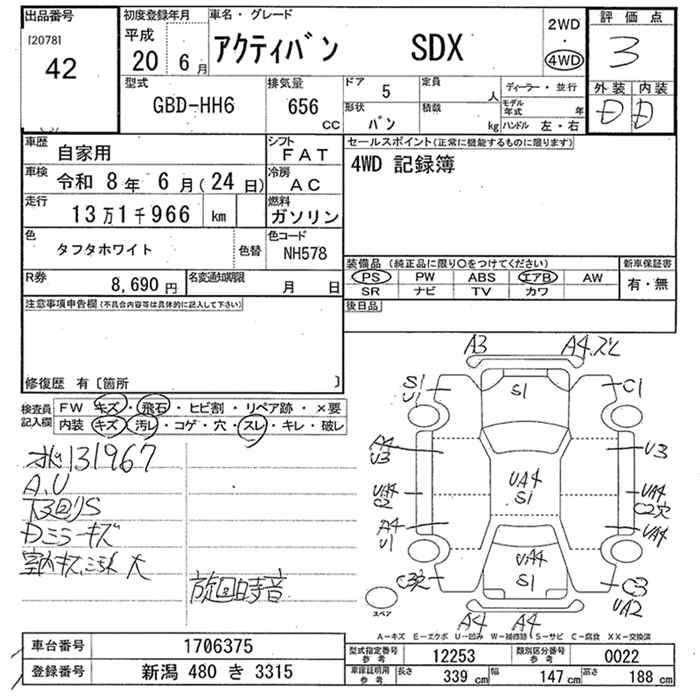 出品番号
[2078]
42
初度登録年月
平成
20 6月
車名・グレード
アクティバン SDX
2WD
・
4WD
評価点
3
外装 内装
D D
型式
GBD-HH6
排気量
656
CC
ドア 5
形状
バン
定員
人
積載
kg
ディーラー・並行
モデル年式 年
ハンドル 左・右
車歴
自家用
シフト
FAT
車検 令和 8年 6月(24日)
冷房
AC
走行
13万1千966 km
燃料
ガソリン
色
タフタホワイト
色替
色コード
NH578
R券
8,690円
名変通知期限
月 日
セールスポイント(正常に機能するものに限ります)
4WD 記録簿
装備品 (純正品に限り○をつけてください)
PS PW ABS エアB AW
SR ナビ TV カワ
新車保証書
有・無
後日品
注意事項申告欄(不具合内容等は具体的に記入して下さい)
修復歴 有〔箇所 〕
検査員記入欄
FW キズ・飛石・ヒビ割・リペア跡・×要
内装 キズ・汚レ・コゲ・穴・スレ・キレ・破レ
131967
A.U
下回りS
Dミラーキズ
室内キズ 大
A3
A4.ズレ
S1
U1
S1
C1
A4
U3
U3
UA4
C2
UA4
S1
UA4
C2穴
A4
U1
UA4
UA4
S1
C3穴
C3
UA2
A4
A4
スペア
A-キズ E-エクボ U-凹み W-補修跡 S-サビ C-腐食 XX-交換済
車台番号
1706375
登録番号
新潟 480 き 3315
型式指定番号
参考
12253
類別区分番号
参考
0022
車庫証明用
参考
長さ 339 cm 幅 147 cm 高さ 188 cm